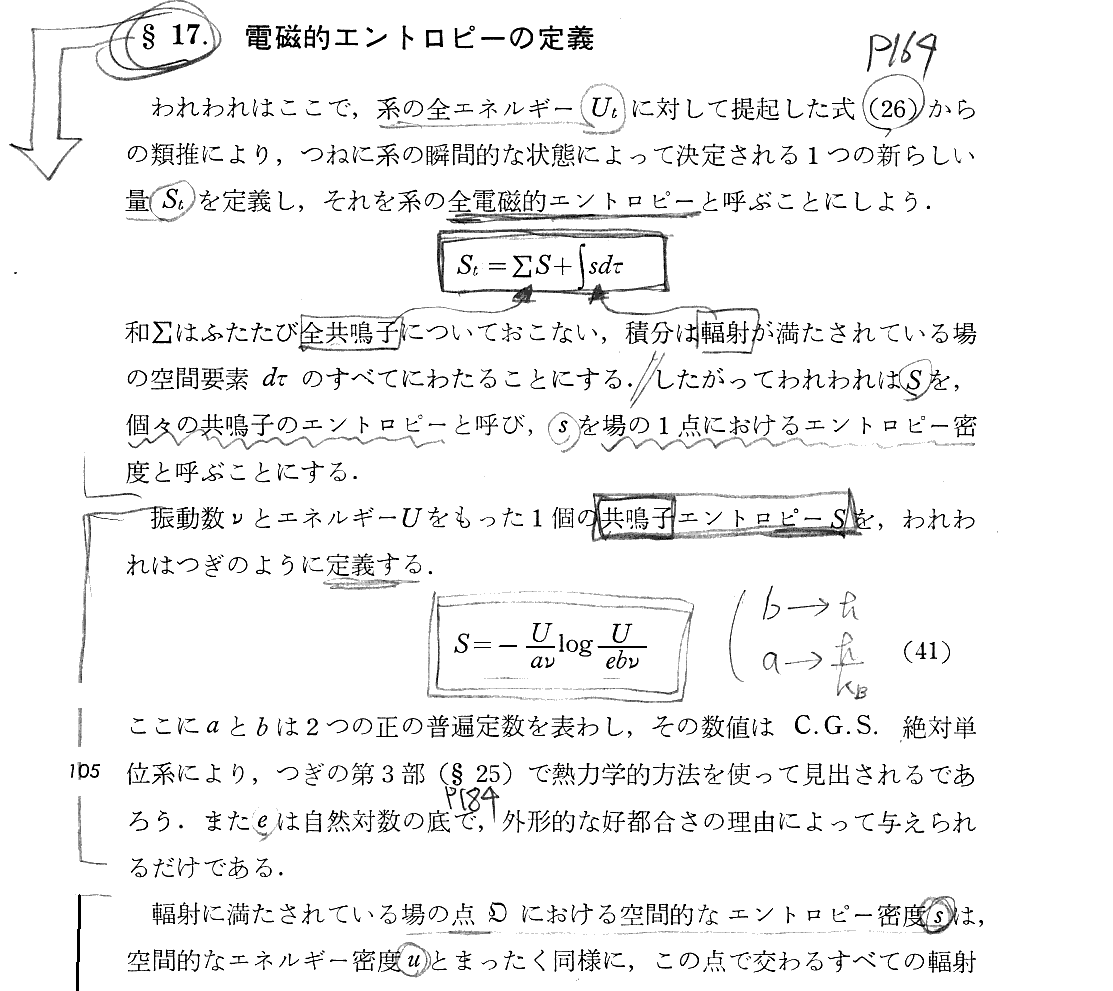 § 17. 電磁的エントロピーの定義
P164
われわれはここで，系の全エネルギー Ut に対して提起した式 (26) から
の類推により，つねに系の瞬間的な状態によって決定される1つの新らしい
量 St を定義し，それを系の全電磁的エントロピーと呼ぶことにしよう．
St = ∑S+∫sdτ
和∑はふたたび全共鳴子についておこない，積分は輻射が満たされている場
の空間要素 dτ のすべてにわたることにする．したがってわれわれは S を，
個々の共鳴子のエントロピーと呼び，s を場の1点におけるエントロピー密
度と呼ぶことにする．
振動数νとエネルギーUをもった1個の共鳴子エントロピーSを，われわ
れはつぎのように定義する．
S=− U/aν log U/ebν (41)
b→ℏ
a→ℏ/kB
ここに a と b は2つの正の普遍定数を表わし，その数値は C.G.S. 絶対単
105 位系により，つぎの第3部（§ 25）で熱力学的方法を使って見出されるであ
P184
ろう．また e は自然対数の底で，外形的な好都合さの理由によって与えられ
るだけである．
輻射に満たされている場の点 𝔒 における空間的なエントロピー密度 s は，
空間的なエネルギー密度 u とまったく同様に，この点で交わるすべての輻射